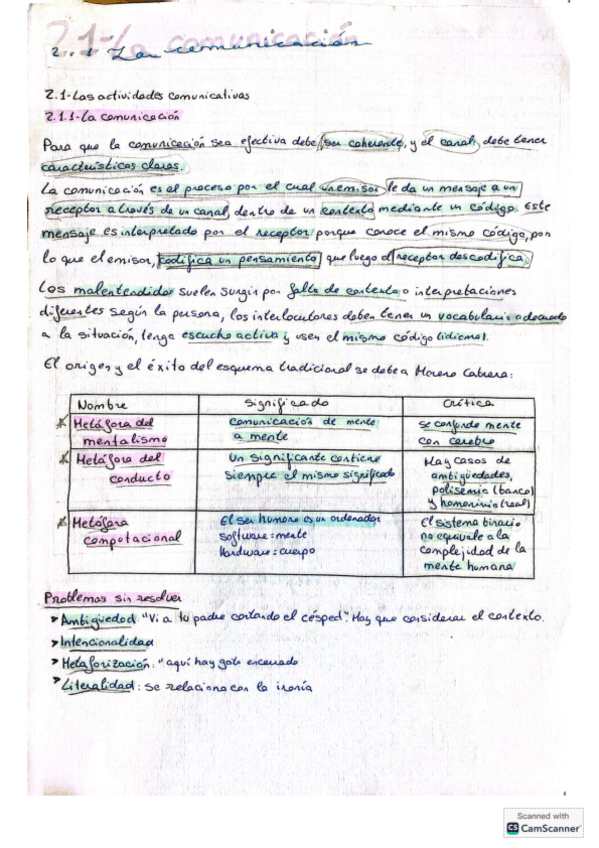 2.1-La comunicación
2.1 La comunicación
2.1-Las actividades comunicativas
2.1.1-La comunicación
Para que la comunicación sea efectiva debe ser coherente, y el canal debe tener
características claras.
La comunicación es el proceso por el cual un emisor le da un mensaje a un
receptor a través de un canal, dentro de un contexto mediante un código. Este
mensaje es interpretado por el receptor porque conoce el mismo código, por
lo que el emisor, codifica un pensamiento que luego el receptor descodifica.
Los malentendidos suelen surgir por falta de contexto o interpretaciones
diferentes según la persona, los interlocutores deben tener un vocabulario adecuado
a la situación, tenga escucha activa y usen el mismo código (idioma).
El origen y el éxito del esquema tradicional se debe a Moreno Cabrera:
Nombre Significado Crítica
Metáfora del mentalismo comunicación de mente a mente se confunde mente con cerebro
Metáfora del conducto Un significante contiene siempre el mismo significado Hay casos de ambigüedades, polisemia (banco) y homonimia (real)
Metáfora computacional El ser humano es un ordenador Software = mente Hardware = cuerpo El sistema binario no equivale a la complejidad de la mente humana
Problemas sin resolver
➤ Ambigüedad "Vi a tu padre cortando el césped". Hay que considerar el contexto.
➤ Intencionalidad
➤ Metaforización: "aquí hay gato encerrado
➤ Literalidad: se relaciona con la ironía
Scanned with
CS CamScanner